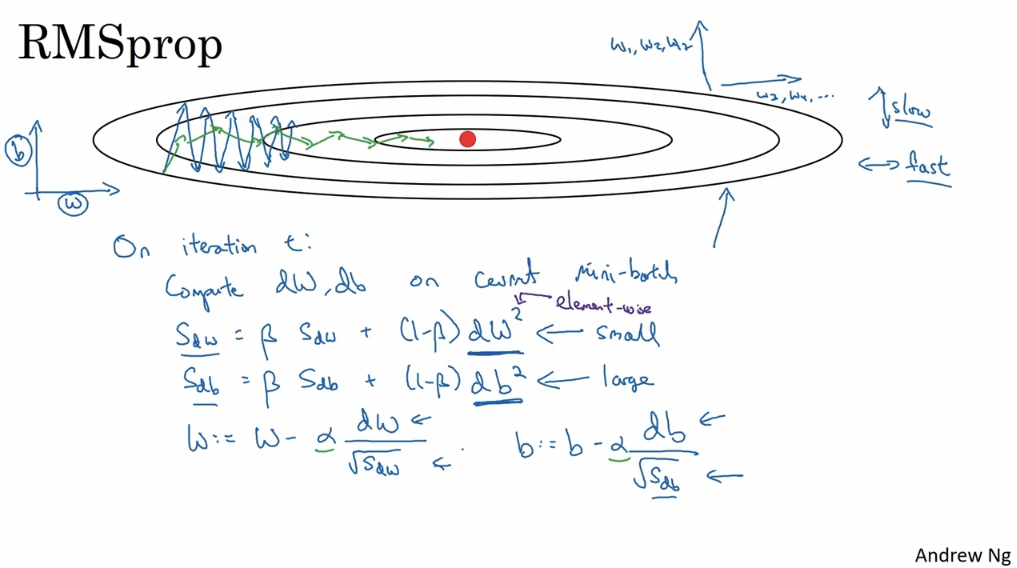 RMSprop
w₁, w₂, w₂
w₃, w₄, ...
slow
fast
b
w
On iteration t:
Compute dW, db on current mini-batch
element-wise
S_dw = β S_dw + (1-β) dW² ← small
S_db = β S_db + (1-β) db² ← large
W := W - α dW/√S_dw b := b - α db/√S_db
Andrew Ng